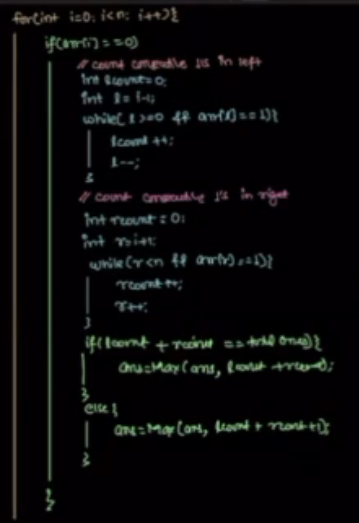 for(int i=0; i<n; i++){
if(arr[i]==0)
// count consecutive 1's in left
int lcount=0;
int l= i-1;
while( l>=0 && arr[l]==1){
lcount++;
l--;
}
// count consecutive 1's in right
int rcount = 0;
int r=i+1;
while(r<n && arr[r]==1){
rcount++;
r++;
}
if(lcount + rcount == total ones){
ans=Max(ans, lcount+rcount);
}
else{
ans=Max(ans, lcount + rcount+1)
}
}